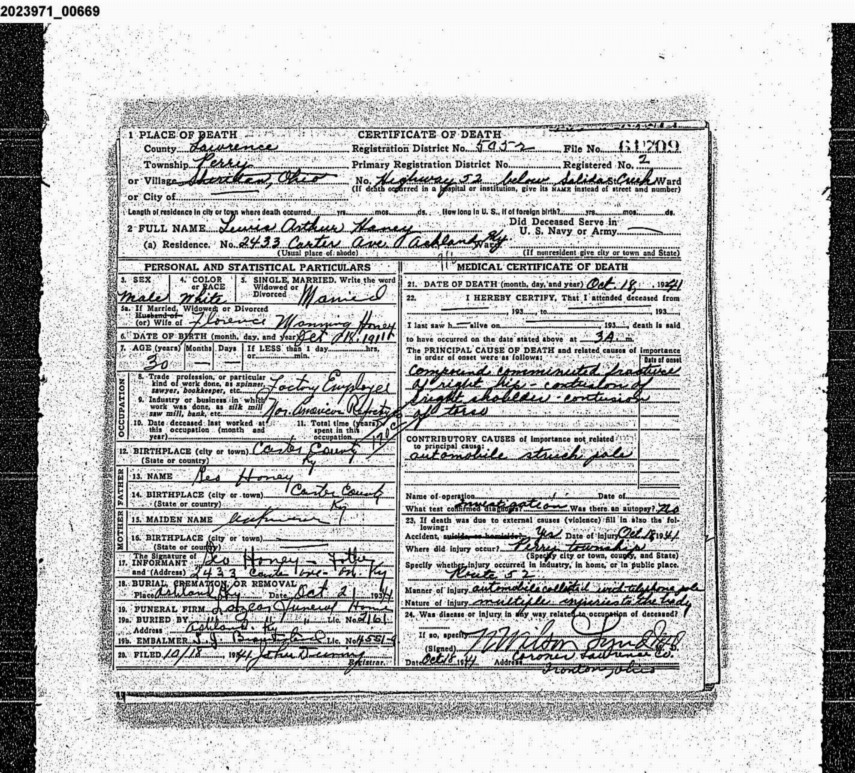 2023971_00669
1 PLACE OF DEATH CERTIFICATE OF DEATH
County Lawrence Registration District No. 5052 File No. 61709
Township Perry Primary Registration District No. Registered No. 2
or Village Ohio No. Highway 52 below Salida St. Ward
(If death occurred in a hospital or institution, give its NAME instead of street and number)
or City of
Length of residence in city or town where death occurred yrs. mos. ds. How long in U. S., if of foreign birth? yrs. mos. ds.
2 FULL NAME Arthur Haney Did Deceased Serve in
U. S. Navy or Army
(a) Residence. No. 2433 Carter Ave Ashland Ky Ward
(Usual place of abode) (If nonresident give city or town and State)
PERSONAL AND STATISTICAL PARTICULARS
3. SEX 4. COLOR or RACE 5. SINGLE, MARRIED, Write the word
Widowed or
Divorced
Male White Married
5a. If Married, Widowed or Divorced
Husband of
(or) Wife of Florence Manning
6. DATE OF BIRTH (month, day, and year) 1911
7. AGE (years) Months Days If LESS than 1 day hrs.
or min.
30
OCCUPATION
8. Trade profession, or particular
kind of work done, as spinner,
sawyer, bookkeeper, etc. Factory Employee
9. Industry or business in which
work was done, as silk mill
saw mill, bank, etc. Nor. American
10. Date deceased last worked at
this occupation (month and
year)
11. Total time (years)
spent in this
occupation
12. BIRTHPLACE (city or town) Carter County
(State or country) Ky
FATHER
13. NAME
14. BIRTHPLACE (city or town) Carter County
(State or country) Ky
MOTHER
15. MAIDEN NAME unknown
16. BIRTHPLACE (city or town)
(State or country)
The Signature of
17. INFORMANT
and (Address) 2433 Carter Ave Ky
18. BURIAL CREMATION OR REMOVAL
Place Ashland Ky Date Oct 21 1941
19. FUNERAL FIRM Funeral Home
19a. BURIED BY Lic. No. 2161
Address Ashland Ky
19b. EMBALMER Lic. No.
20. FILED 10/18 1941 John
Registrar.
MEDICAL CERTIFICATE OF DEATH
21. DATE OF DEATH (month, day, and year) Oct 18, 1941
22. I HEREBY CERTIFY, That I attended deceased from
193 193
I last saw h alive on 193 death is said
to have occurred on the date stated above at 3 A. m.
The PRINCIPAL CAUSE OF DEATH and related causes of importance
in order of onset were as follows: Date of onset
Compound comminuted fracture
of right hip - contusion of
right shoulder - contusion
of torso
CONTRIBUTORY CAUSES of importance not related
to principal cause:
automobile struck pole
Name of operation Date of
What test confirmed diagnosis? investigation Was there an autopsy? no
23. If death was due to external causes (violence) fill in also the fol-
lowing:
Accident, suicide or homicide? Yes Date of injury Oct 18 1941
Where did injury occur? Perry township
(Specify city or town, county, and State)
Specify whether injury occurred in industry, in home, or in public place.
Route 52
Manner of injury automobile collided with telephone pole
Nature of injury multiple injuries to the body
24. Was disease or injury in any way related to occupation of deceased?
If so, specify
(Signed)
Coroner Lawrence Co.
Date Oct 18 1941 Address Ironton, Ohio